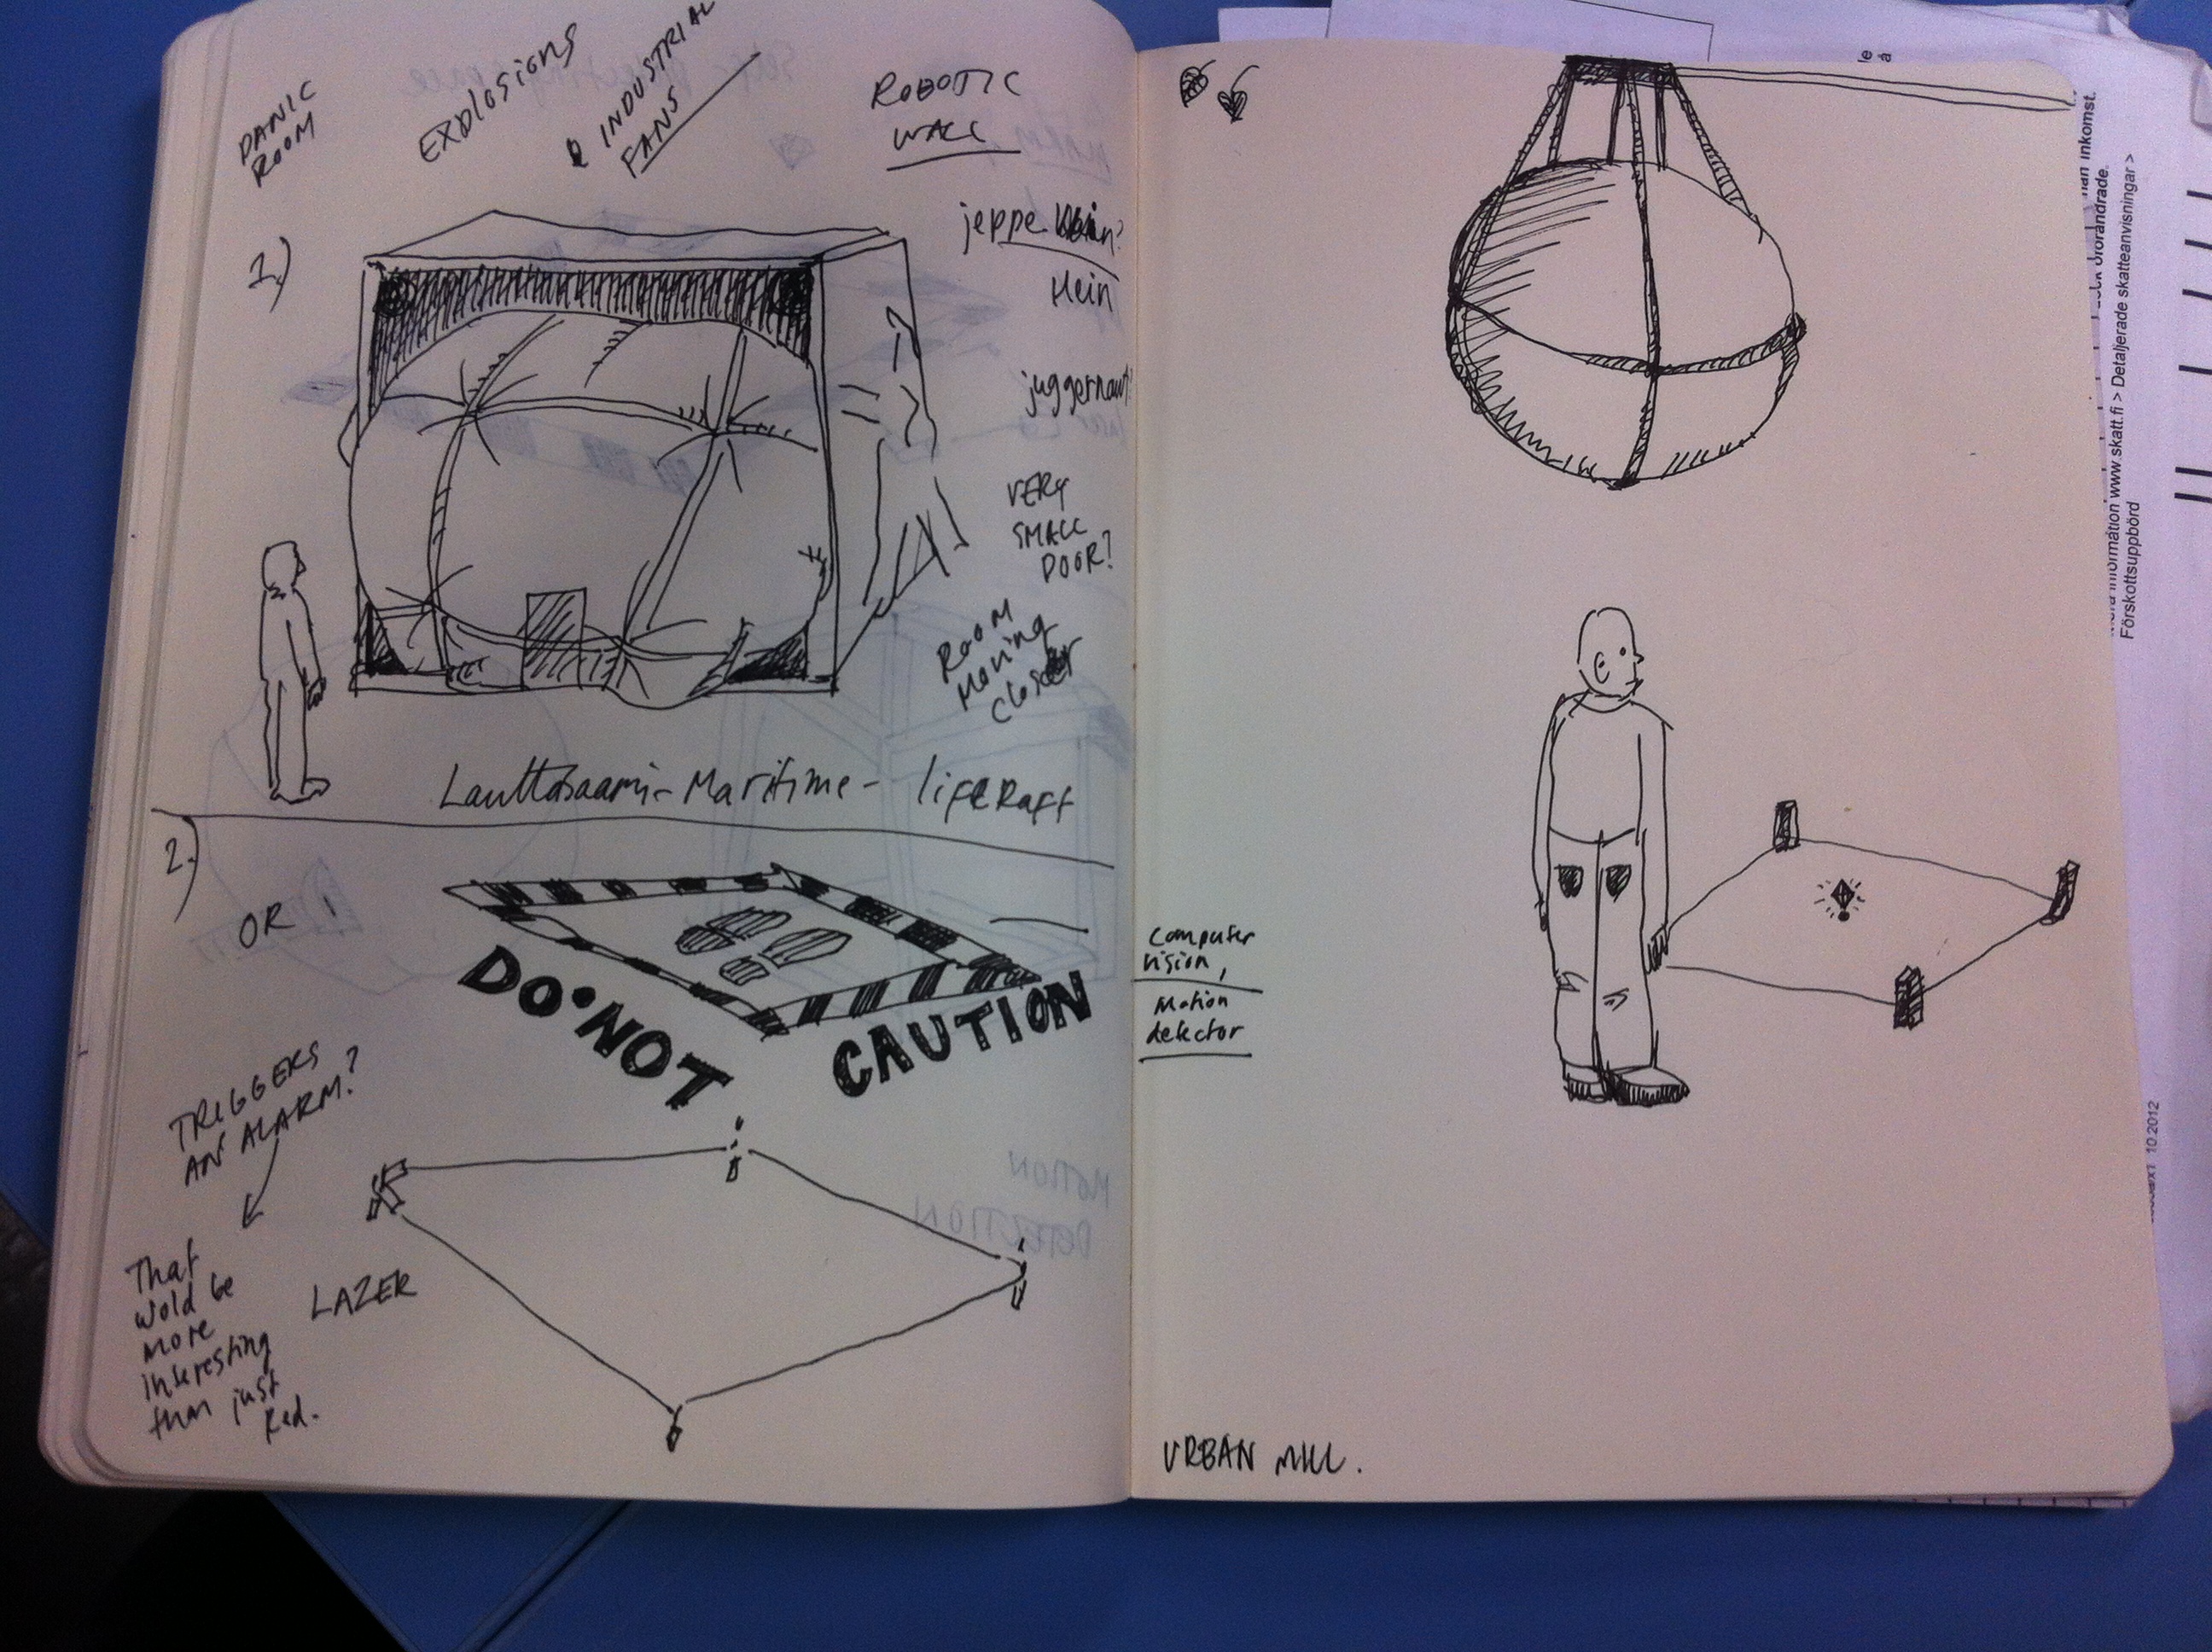 PANIC
ROOM
EXplosions
& INDUSTRIAL
FANS
ROBOTIC
WALL
1.)
jeppe
Hein
juggernaut?
VERY
SMALL
DOOR?
ROOM
Moving
closer
Lauttasaari-Maritime- lifeRaft
2.)
OR
DO•NOT
CAUTION
TRIGGERS
AN ALARM?
That
wold be
more
interesting
than just
Red.
LAZER
MOTION
DETECTION
Computer
vision,
Motion
detector
URBAN MILL.
www.skatt.fi > Detaljerade skatteanvisningar >
Förskottsuppbörd
10.2012